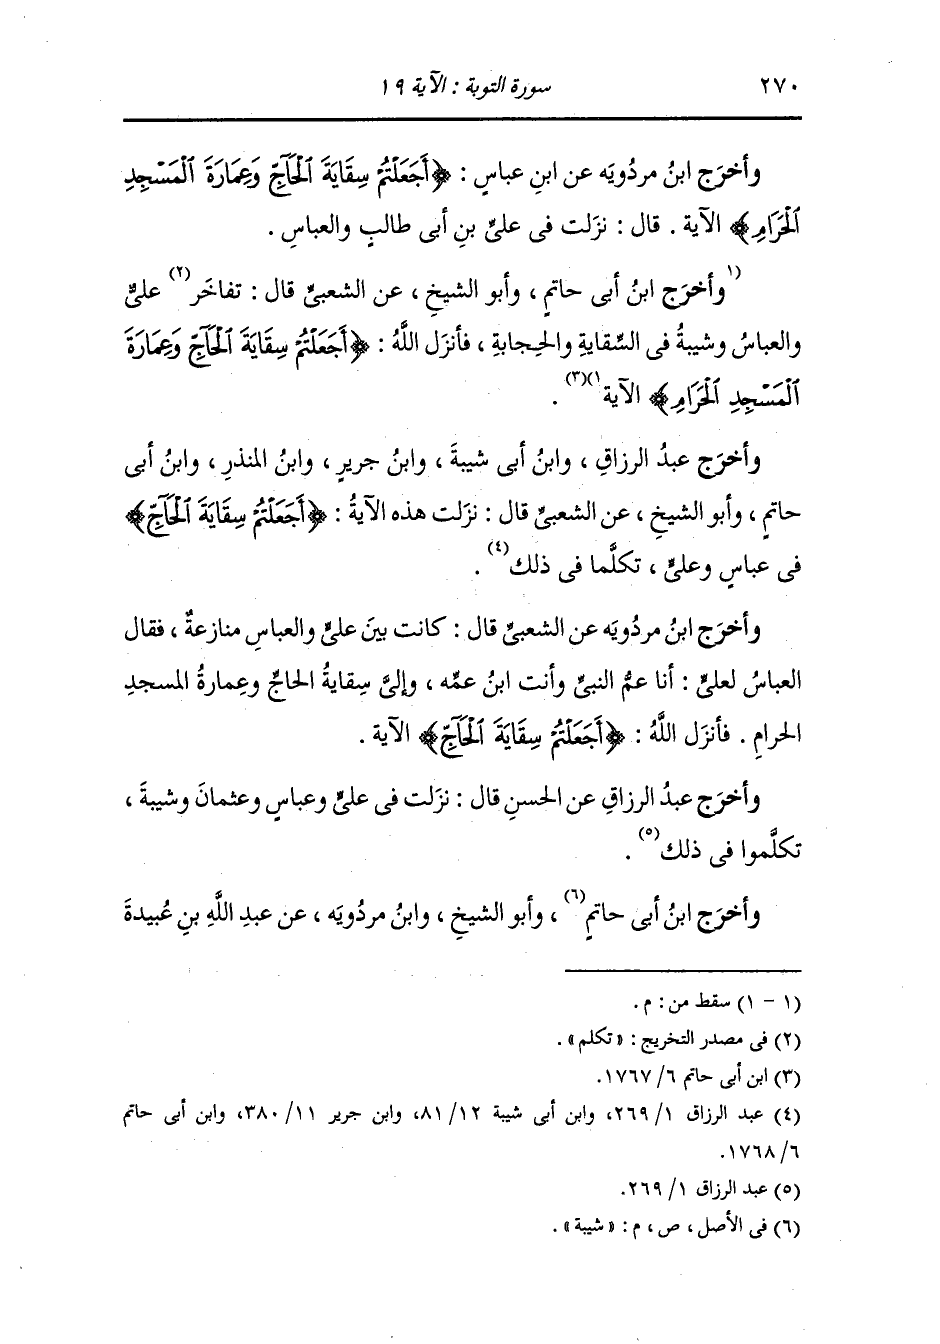 ٢٧٠ سورة التوبة : الآية ١٩
وأخرَج ابنُ مردُويَه عن ابنِ عباسٍ : ﴿أَجَعَلْتُمْ سِقَايَةَ ٱلْحَآجِّ وَعِمَارَةَ ٱلْمَسْجِدِ
ٱلْحَرَامِ﴾ الآية . قال : نزَلت فى علىِّ بنِ أبى طالبٍ والعباسِ .
(١وأخرَج ابنُ أبى حاتمٍ ، وأبو الشيخِ ، عن الشعبىِّ قال : تفاخَر(٢) علىٌّ
والعباسُ وشيبةُ فى السِّقايةِ والحِجابةِ ، فأنزَل اللَّهُ : ﴿أَجَعَلْتُمْ سِقَايَةَ ٱلْحَآجِّ وَعِمَارَةَ
ٱلْمَسْجِدِ ٱلْحَرَامِ﴾ الآية١)(٣) .
وأخرَج عبدُ الرزاقِ ، وابنُ أبى شيبةَ ، وابنُ جريرٍ ، وابنُ المنذرِ ، وابنُ أبى
حاتمٍ ، وأبو الشيخِ ، عن الشعبىِّ قال : نزَلت هذه الآيةُ : ﴿أَجَعَلْتُمْ سِقَايَةَ ٱلْحَآجِّ﴾
فى عباسٍ وعلىٍّ ، تكلَّما فى ذلك(٤) .
وأخرَج ابنُ مردُويَه عن الشعبىِّ قال : كانت بينَ علىٍّ والعباسِ منازعةٌ ، فقال
العباسُ لعلىٍّ : أنا عمُّ النبىِّ وأنت ابنُ عمِّه ، وإلىَّ سِقايةُ الحاجِّ وعِمارةُ المسجدِ
الحرامِ . فأنزَل اللَّهُ : ﴿أَجَعَلْتُمْ سِقَايَةَ ٱلْحَآجِّ﴾ الآية .
وأخرَج عبدُ الرزاقِ عن الحسنِ قال : نزَلت فى علىٍّ وعباسٍ وعثمانَ وشيبةَ ،
تكلَّموا فى ذلك(٥) .
وأخرَج ابنُ أبى حاتمٍ(٦) ، وأبو الشيخِ ، وابنُ مردُويَه ، عن عبدِ اللَّهِ بنِ عُبيدةَ
(١ - ١) سقط من : م .
(٢) فى مصدر التخريج : « تكلم » .
(٣) ابن أبى حاتم ٦/ ١٧٦٧.
(٤) عبد الرزاق ١/ ٢٦٩، وابن أبى شيبة ١٢/ ٨١، وابن جرير ١١/ ٣٨٠، وابن أبى حاتم
٦/ ١٧٦٨.
(٥) عبد الرزاق ١/ ٢٦٩.
(٦) فى الأصل ، ص ، م : « شيبة » .